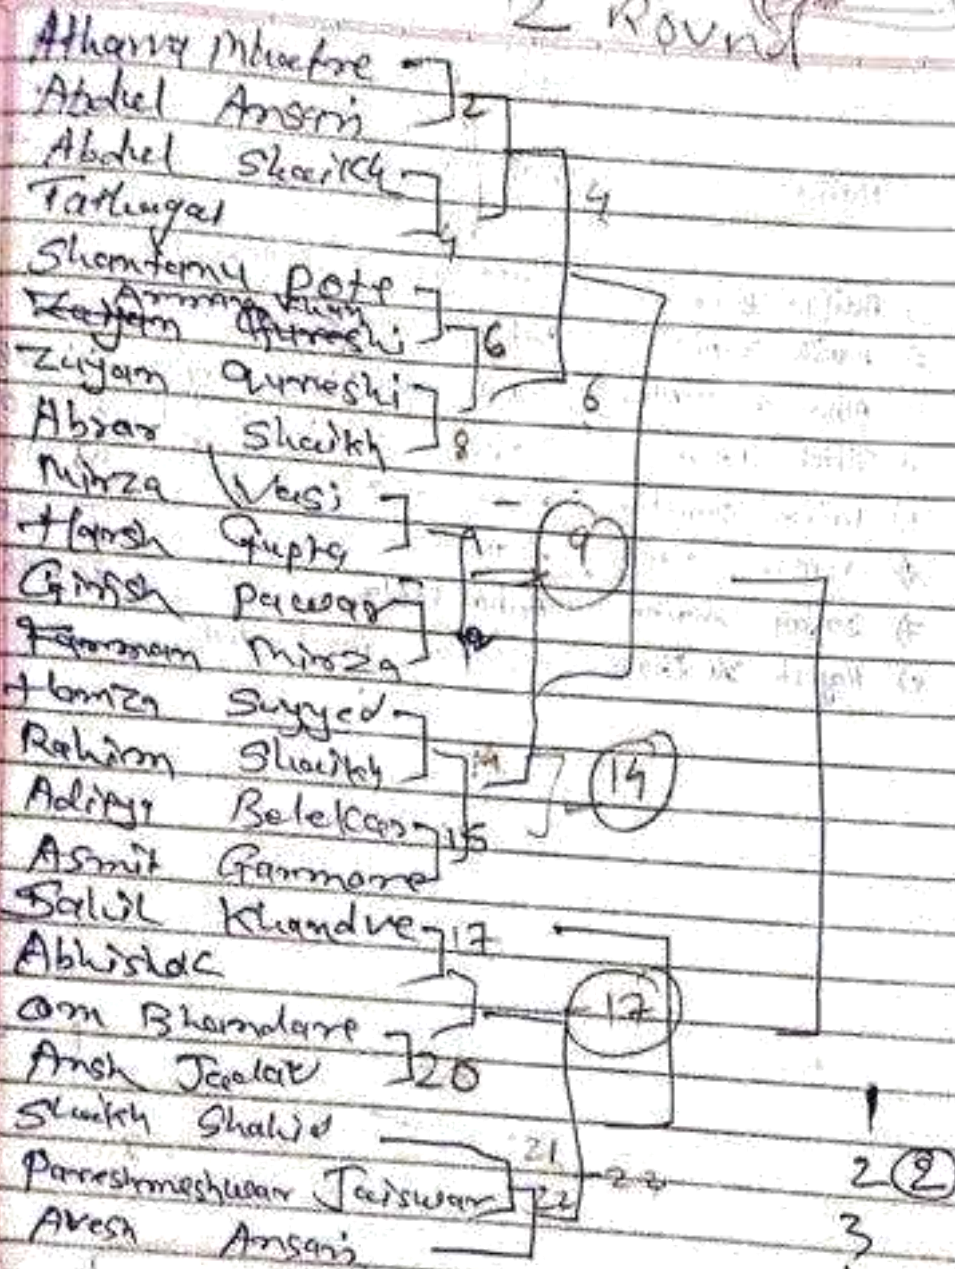 2 Round
Atharva Mhaetre
Abdul Ansari 2
Abdul Shaikh 4
Tathugat 4
Shantanu Pote
Arman Khan
Zayan Qureshi 6
Ziyan Qureshi 6
Abrar Shaikh 8
Mirza Wasi
Harsh Gupta 9
Girish Pawar
Farman Mirza
Hamza Sayyed
Rahim Shaikh 14 14
Aditya Belekar 15
Asmit Garmore
Salil Khandve 17
Abhishek
Om Bhandare 17
Ansh Jadav 20
Shaikh Shahid 1
21
Parashmeshwar Jaiswar 22 22 2 2
Avesh Ansari 3